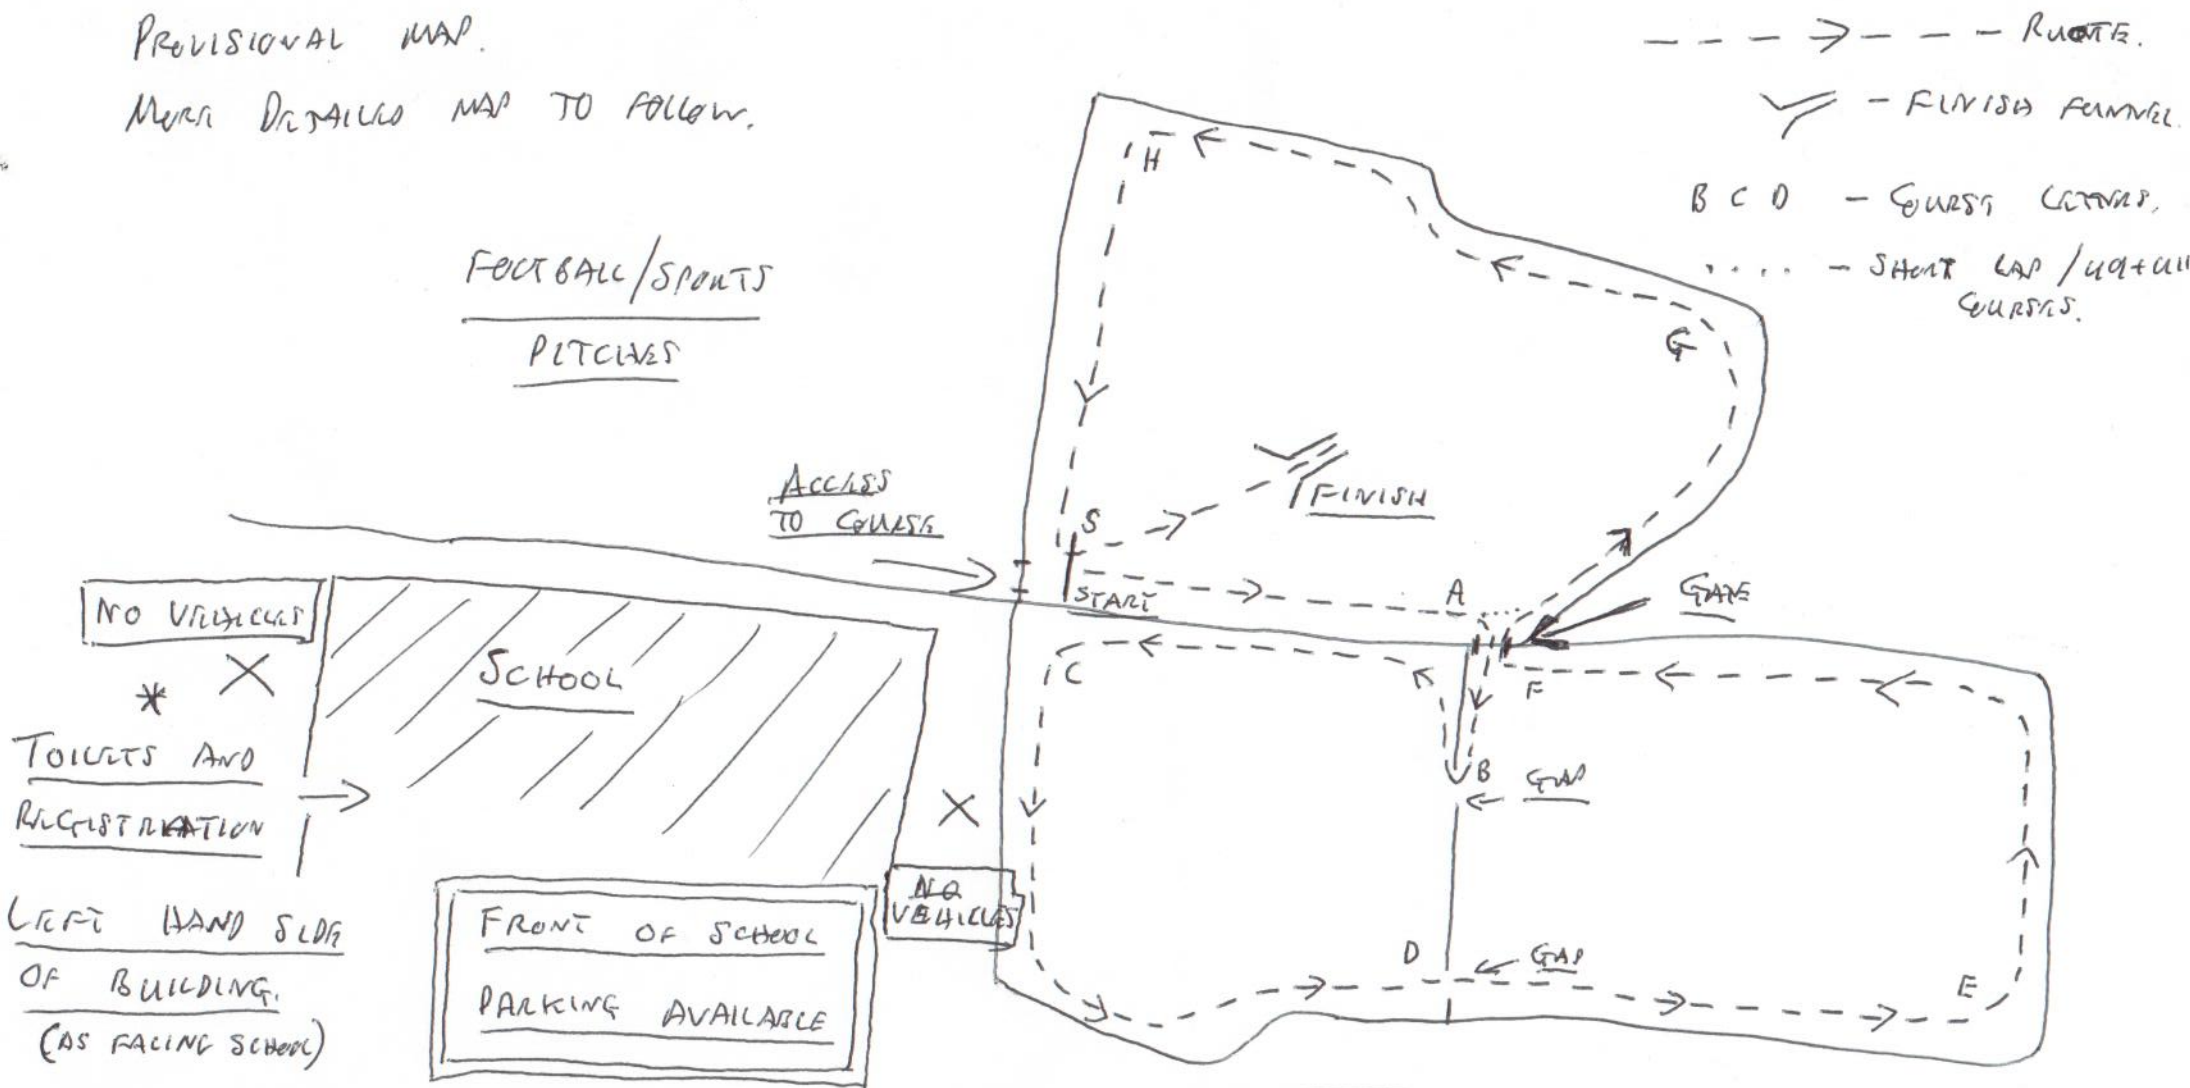 PROVISIONAL MAP.
MORE DETAILED MAP TO FOLLOW.
ROUTE.
- FINISH FUNNEL.
B C D - COURSE LETTERS.
.... - SHORT LAP / U9+U11
COURSES.
FOOTBALL/SPORTS
PITCHES
ACCESS
TO COURSE
H
G
S
FINISH
START
A
GATE
NO VEHICLES
SCHOOL
C
F
B
GAP
TOILETS AND
REGISTRATION
LEFT HAND SIDE
OF BUILDING.
(AS FACING SCHOOL)
FRONT OF SCHOOL
PARKING AVAILABLE
NO
VEHICLES
D
GAP
E